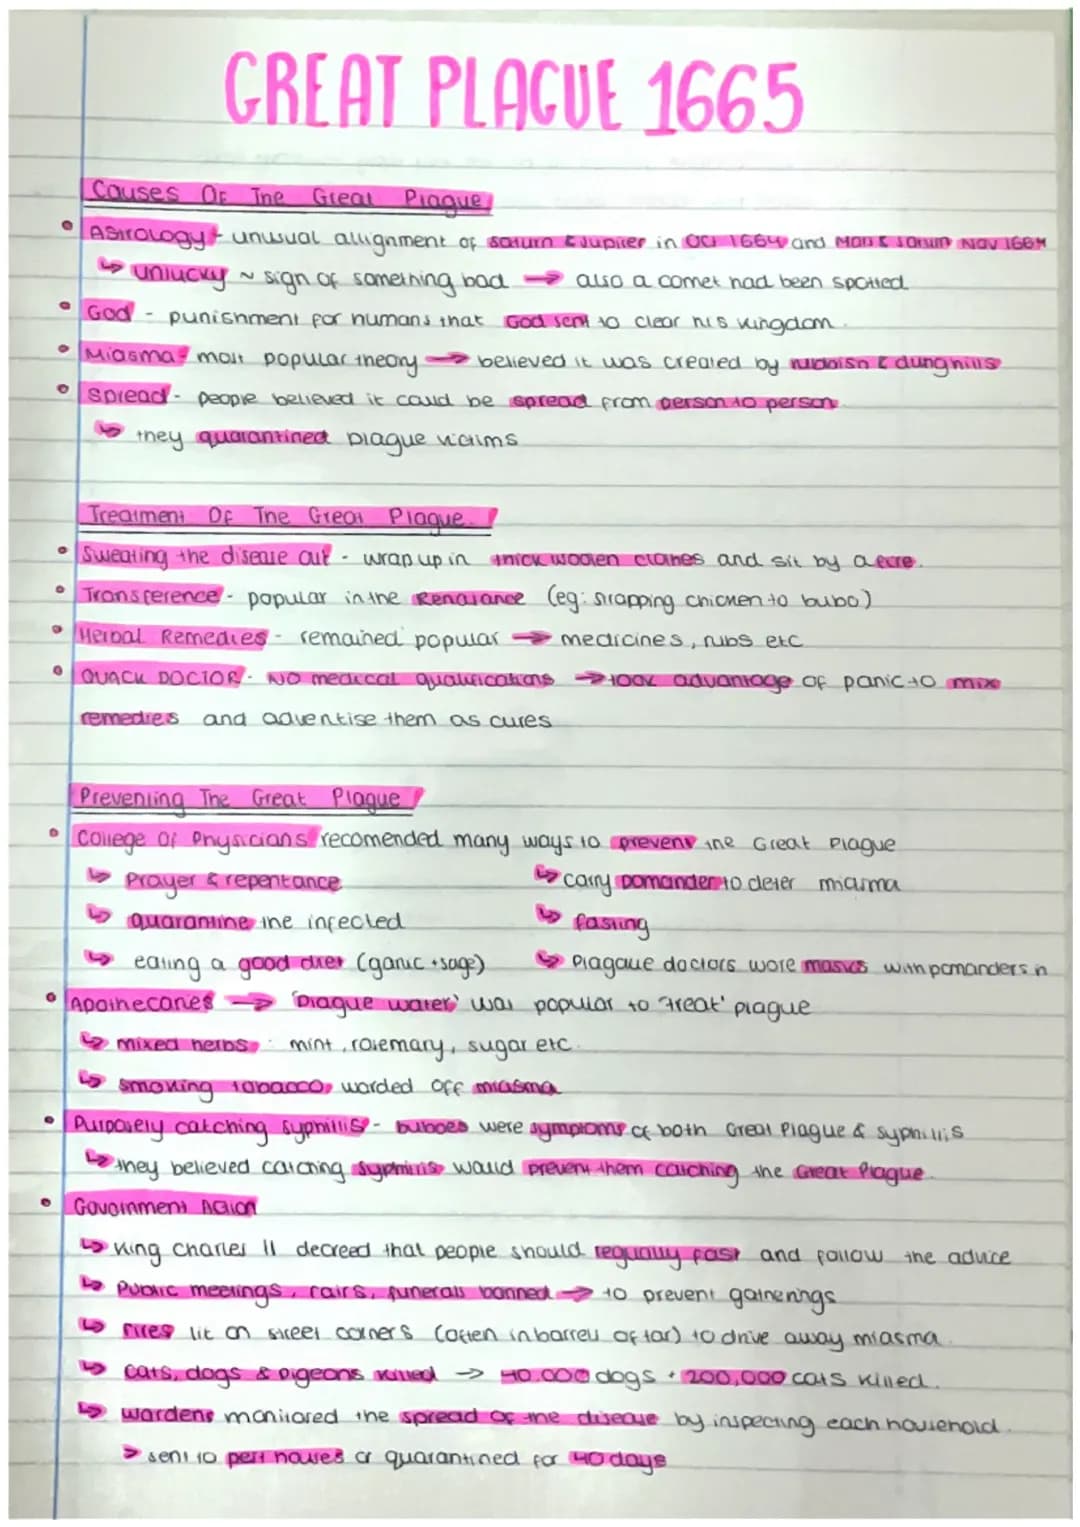 GREAT PLAGUE 1665
Causes Of The Great Plague
• Astrology - unusual allignment of saturn & Jupiter in Oct 1664 and Mars & Saturn Nov 1664
↳ unlucky ~ sign of something bad → also a comet had been spotted.
• God - punishment for humans that God sent to clear his kingdom.
• Miasma - most popular theory → believed it was created by rubbish & dunghills
• Spread - people believed it could be spread from person to person
↳ they quarantined plague victims.
Treatment Of The Great Plague.
• Sweating the disease out - wrap up in thick woolen clothes and sit by a fire.
• Transference - popular in the Renaisance (eg: strapping chicken to bubo)
• Herbal Remedies - remained popular → medicines, rubs etc
• QUACK DOCTOR - NO medical qualifications → took advantage of panic to mix
remedies and advertise them as cures
Preventing The Great Plague
• College Of Physicians recomended many ways to prevent the Great Plague
↳ Prayer & repentance ↳ carry pomander to deter miasma
↳ quarantine the infected ↳ fasting
↳ eating a good diet (garlic + sage) ↳ Plague doctors wore masks with pomanders in
• Apothecaries → 'plague water' was popular to 'treat' plague
↳ mixed herbs: mint, rosemary, sugar etc.
↳ smoking tobacco, warded off miasma
• Purposely catching syphillis - buboes were symptoms of both Great Plague & syphillis
↳ they believed catching syphillis would prevent them catching the Great Plague.
• Government Action
↳ King Charles II decreed that people should regually fast and follow the advice
↳ Public meetings, fairs, funerals banned → to prevent gatherings
↳ Fires lit on street corners (often in barrels of tar) to drive away miasma.
↳ Cats, dogs & pigeons killed → 40,000 dogs + 200,000 cats killed.
↳ wardens monitored the spread of the disease by inspecting each household.
> sent to pest houses or quarantined for 40 days